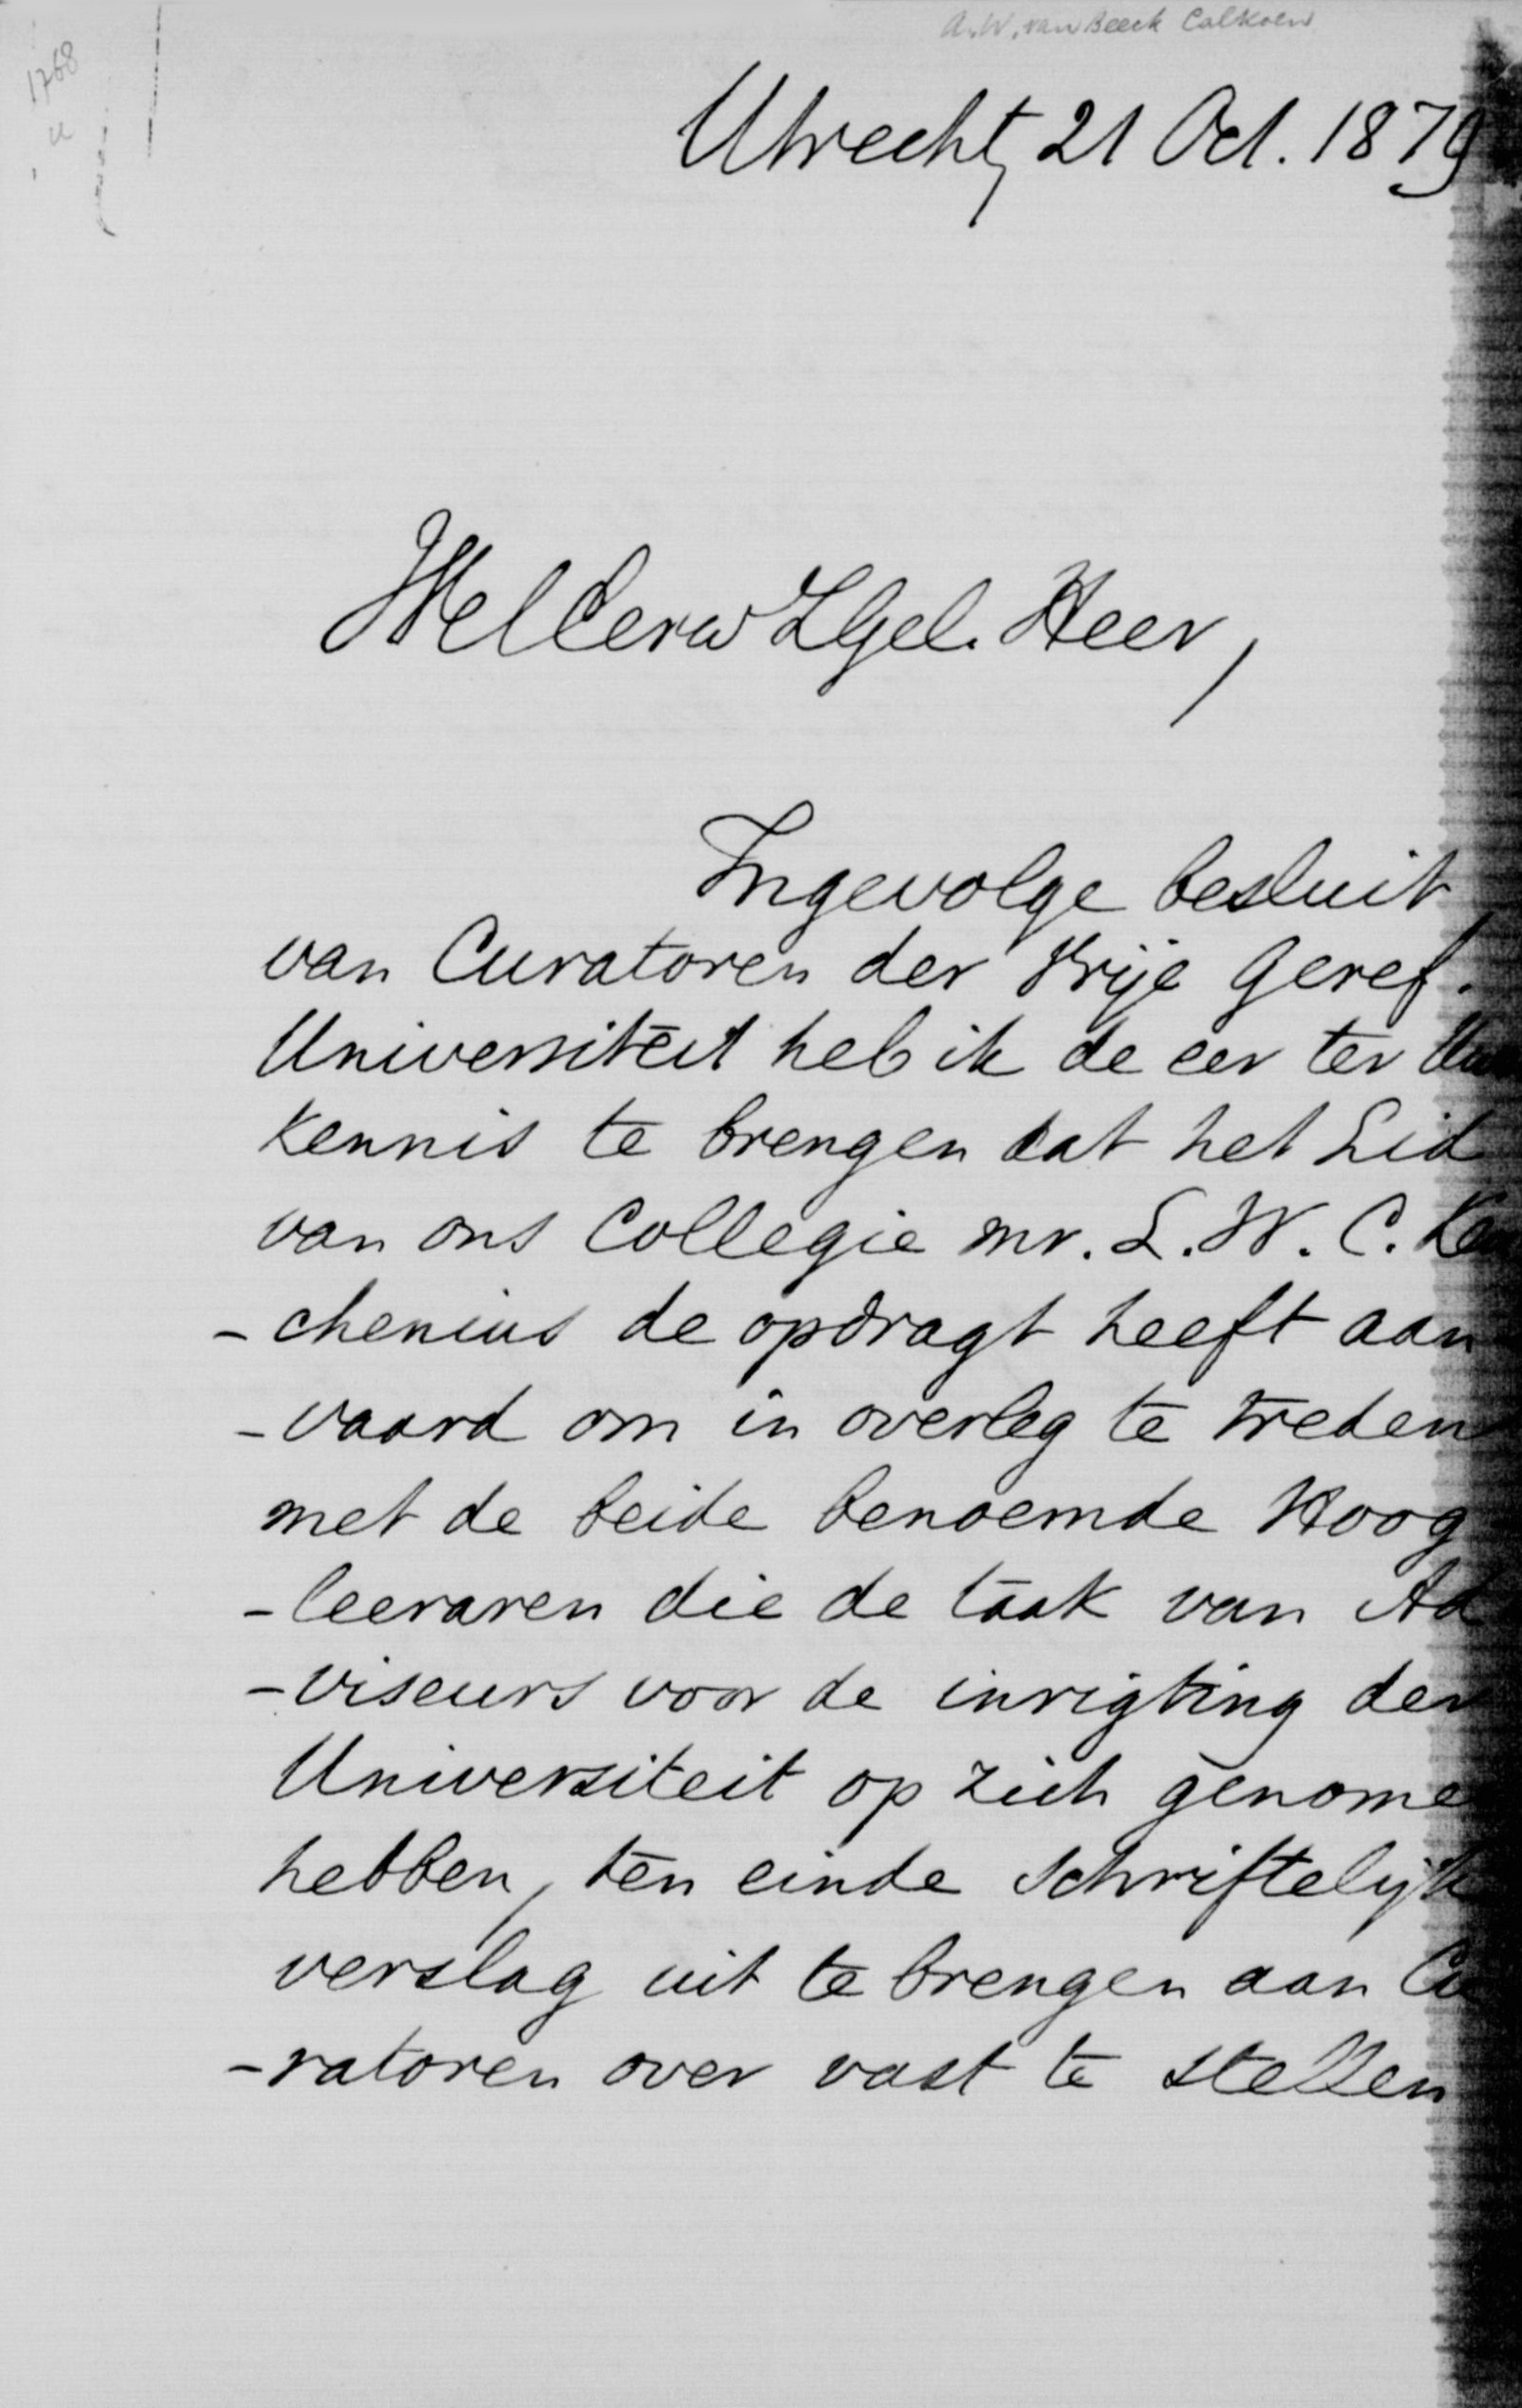 A. W. van Beeck Calkoen
1768
Utrecht, 21 Oct. 1879
WelEerw ZGel. Heer,
Ingevolge besluit
van Curatoren der Vrije Geref.
Universiteit heb ik de eer ter
kennis te brengen dat het Lid
van ons Collegie mr. L. W. C. Keu
-chenius de opdragt heeft aan
-vaard om in overleg te treden
met de beide benoemde Hoog
-leeraren die de taak van Ad
-viseurs voor de inrigting der
Universiteit op zich genome
hebben, ten einde schriftelijk
verslag uit te brengen aan Cu
-ratoren over vast te stellen